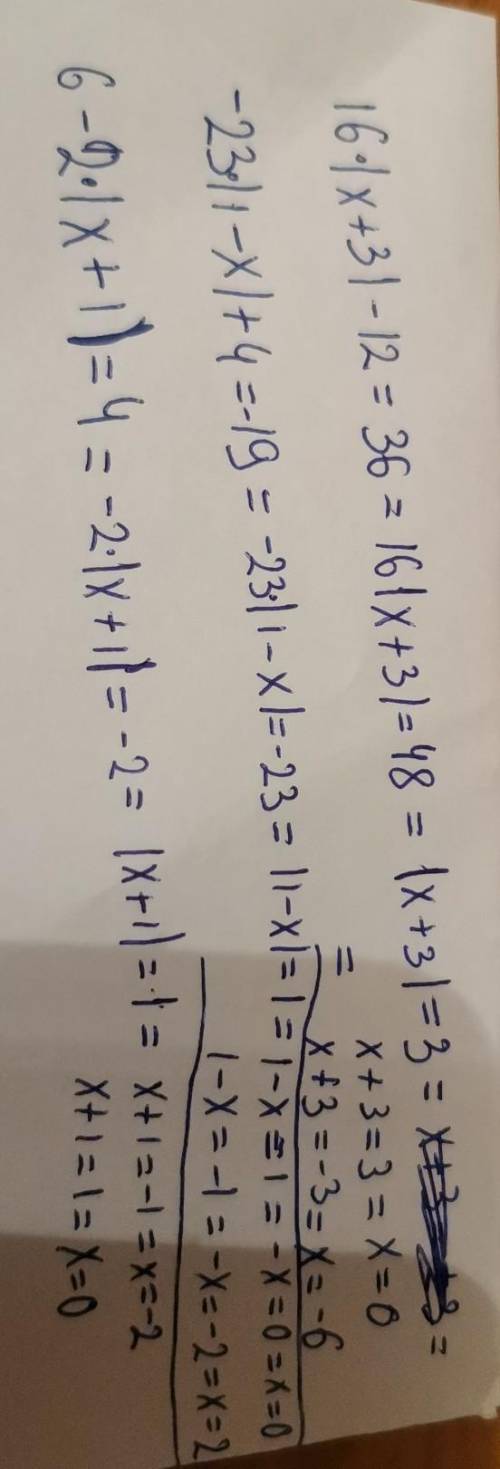 16·|x+3|-12=36=16|x+3|=48=|x+3|=3=
x+3=3=x=0
=
x+3=-3=x=-6
-23·|1-x|+4=-19=-23·|1-x|=-23=|1-x|=1=1-x=1=-x=0=x=0
1-x=-1=-x=-2=x=2
6-2·|x+1|=4=-2·|x+1|=-2=|x+1|=1=x+1=-1=x=-2
x+1=1=x=0